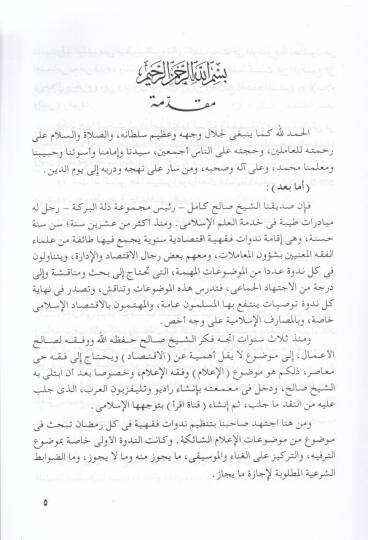 بسم الله الرحمن الرحيم
مقدمة
الحمد لله كما ينبغى لجلال وجهه وعظيم سلطانه، والصلاة والسلام على
رحمته للعالمين، وحجته على الناس أجمعين، سيدنا وإمامنا وأسوتنا وحبيبنا
ومعلمنا محمد، وعلى آله وصحبه، ومن سار على نهجه ودربه إلى يوم الدين.
(أما بعد) :
فإن صديقنا الشيخ صالح كامل - رئيس مجموعة دلة البركة - رجل له
مبادرات طيبة فى خدمة العلم الإسلامى. ومنذ أكثر من عشرين سنة؛ سن سنة
حسنة، وهى إقامة ندوات فقهية اقتصادية سنوية يجمع فيها طائفة من علماء
الفقه المعنيين بشؤون المعاملات، ومعهم بعض رجال الاقتصاد والإدارة، ويتناولون
فى كل ندوة عددا من الموضوعات المهمة، التى تحتاج إلى بحث ومناقشة وإلى
درجة من الاجتهاد الجماعى، فتدرس هذه الموضوعات وتناقش، وتصدر فى نهاية
كل ندوة توصيات ينتفع بها المسلمون عامة، والمهتمون بالاقتصاد الإسلامى
خاصة، وبالمصارف الإسلامية على وجه أخص.
ومنذ ثلاث سنوات اتجه فكر الشيخ صالح حفظه الله ووفقه لصالح
الأعمال، إلى موضوع لا يقل أهمية عن (الاقتصاد) ويحتاج إلى فقه حى
معاصر، ذلكم هو موضوع (الإعلام) وفقه الإعلام، وخصوصا بعد أن ابتلى به
الشيخ صالح، ودخل فى معمعته بإنشاء راديو وتليفزيون العرب، الذى جلب
عليه من النقد ما جلب، ثم إنشاء (قناة اقرأ) بتوجهها الإسلامى.
ومن هنا اجتهد صاحبنا بتنظيم ندوات فقهية فى كل رمضان تبحث فى
موضوع من موضوعات الإعلام الشائكة. وكانت الندوة الأولى خاصة بموضوع
الترفيه، والتركيز على الغناء والموسيقى، ما يجوز منه وما لا يجوز، وما الضوابط
الشرعية المطلوبة لإجازة ما يجاز.
٥